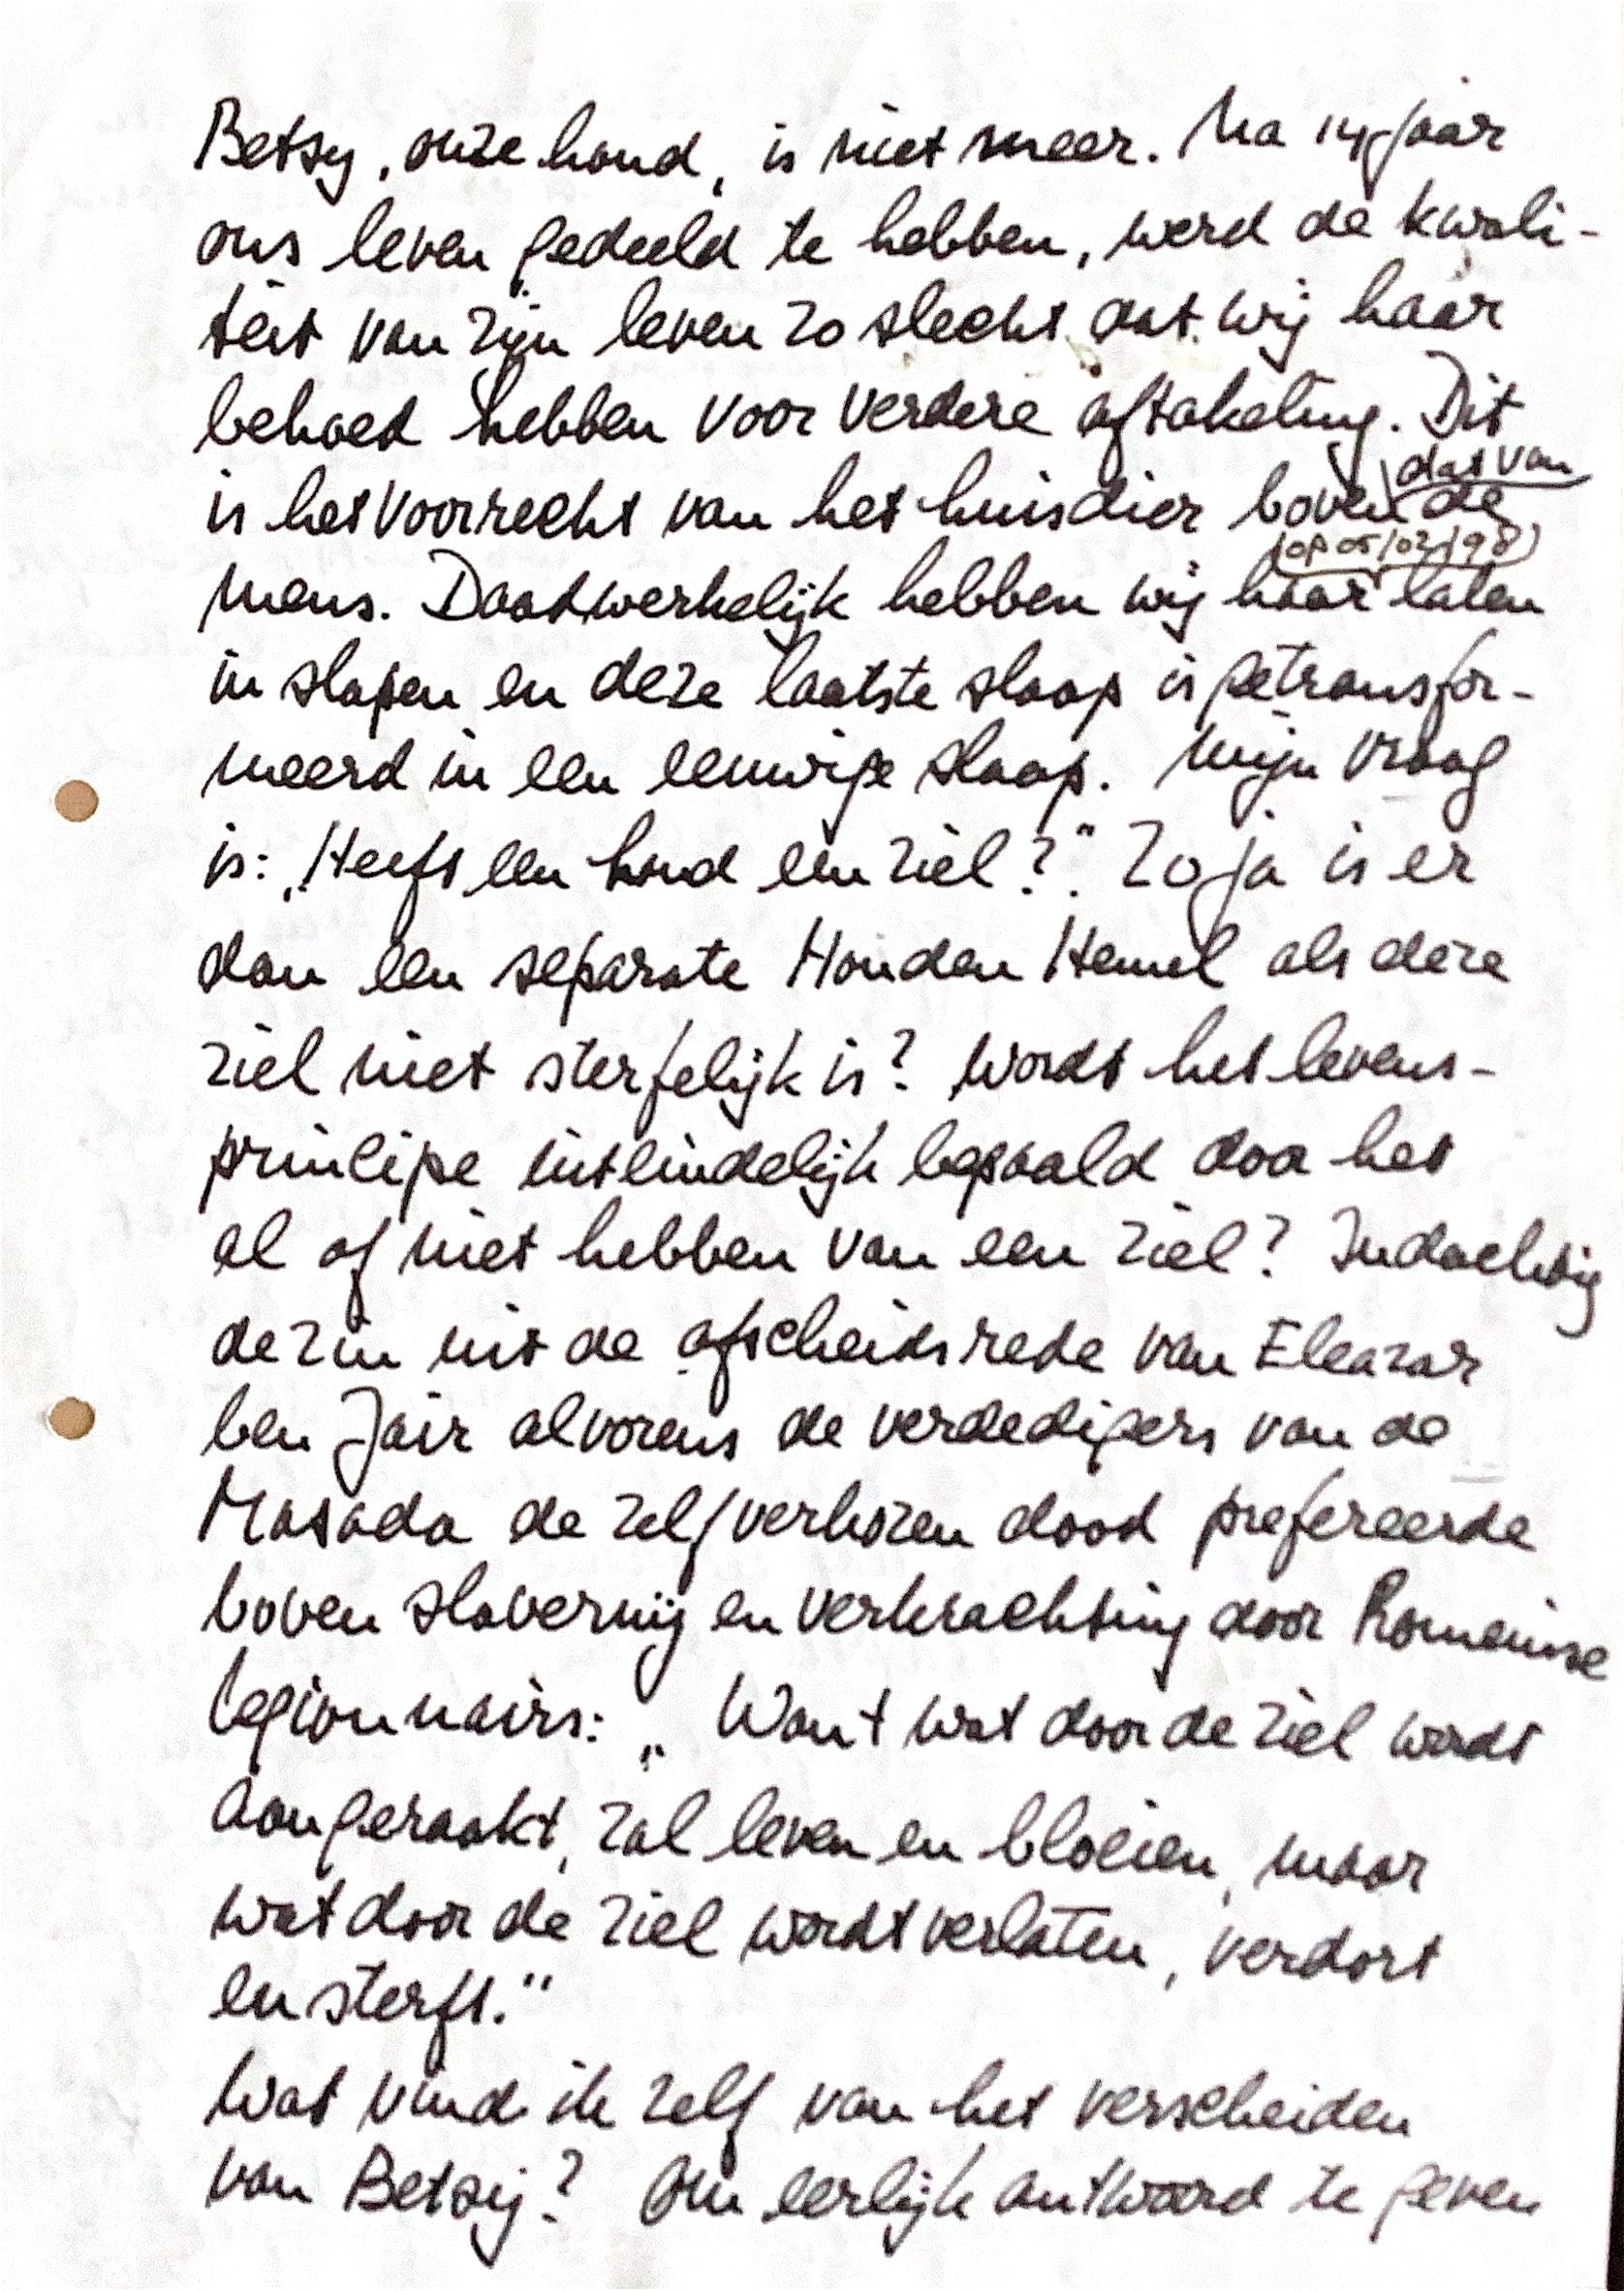 Betsy, onze hond, is niet meer. Na 14 jaar
ons leven gedeeld te hebben, werd de kwali-
teit van zijn leven zo slecht dat wij haar
behoed hebben voor verdere aftakeling. Dit
dat van
is het voorrecht van het huisdier boven de
(op 05/02/98)
mens. Daadwerkelijk hebben wij haar laten
in slapen en deze laatste slaap is getransfor-
meerd in een eeuwige slaap. Mijn vraag
is: „Heeft een hond een ziel?". Zo ja is er
dan een separate Honden Hemel als deze
ziel niet sterfelijk is? Wordt het levens-
principe uiteindelijk bepaald door het
al of niet hebben van een ziel? Indachtig
de zin uit de afscheidsrede van Eleazar
ben Jair alvorens de verdedigers van de
Masada de zelfverkozen dood prefereerde
boven slavernij en verkrachting door Romeinse
legionnairs: „Want wat door de ziel wordt
aangeraakt, zal leven en bloeien, maar
wat door de ziel wordt verlaten, verdort
en sterft."
Wat vind ik zelf van het verscheiden
van Betsy? Om eerlijk antwoord te geven